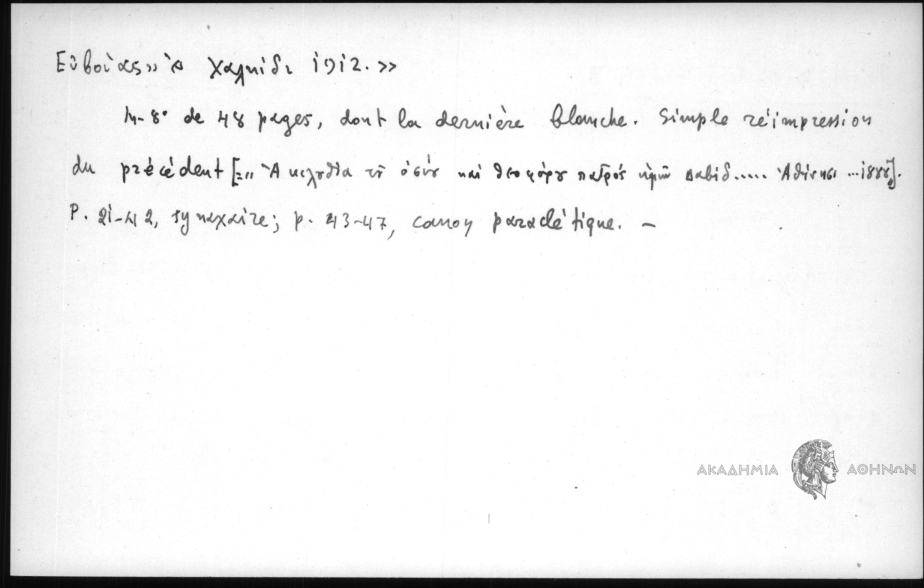 Εὐβοίας» ἐν Χαλκίδι 1912.»
In-8° de 48 pages, dont la dernière blanche. Simple réimpression
du précédent [= „Ἀκολουθία τοῦ ὁσίου καὶ θεοφόρου πατρός ἡμῶν Δαβίδ..... Ἀθήνησι ...1888].
P. 21-42, synaxaire; p. 43-47, canon paraclétique. —
ΑΚΑΔΗΜΙΑ ΑΘΗΝΩΝ